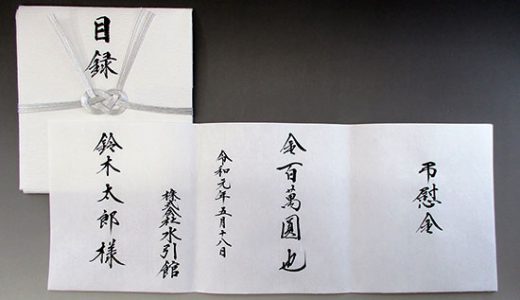 目録
弔慰金
金百萬圓也
令和元年五月十八日
株式会社水引館
鈴木太郎様